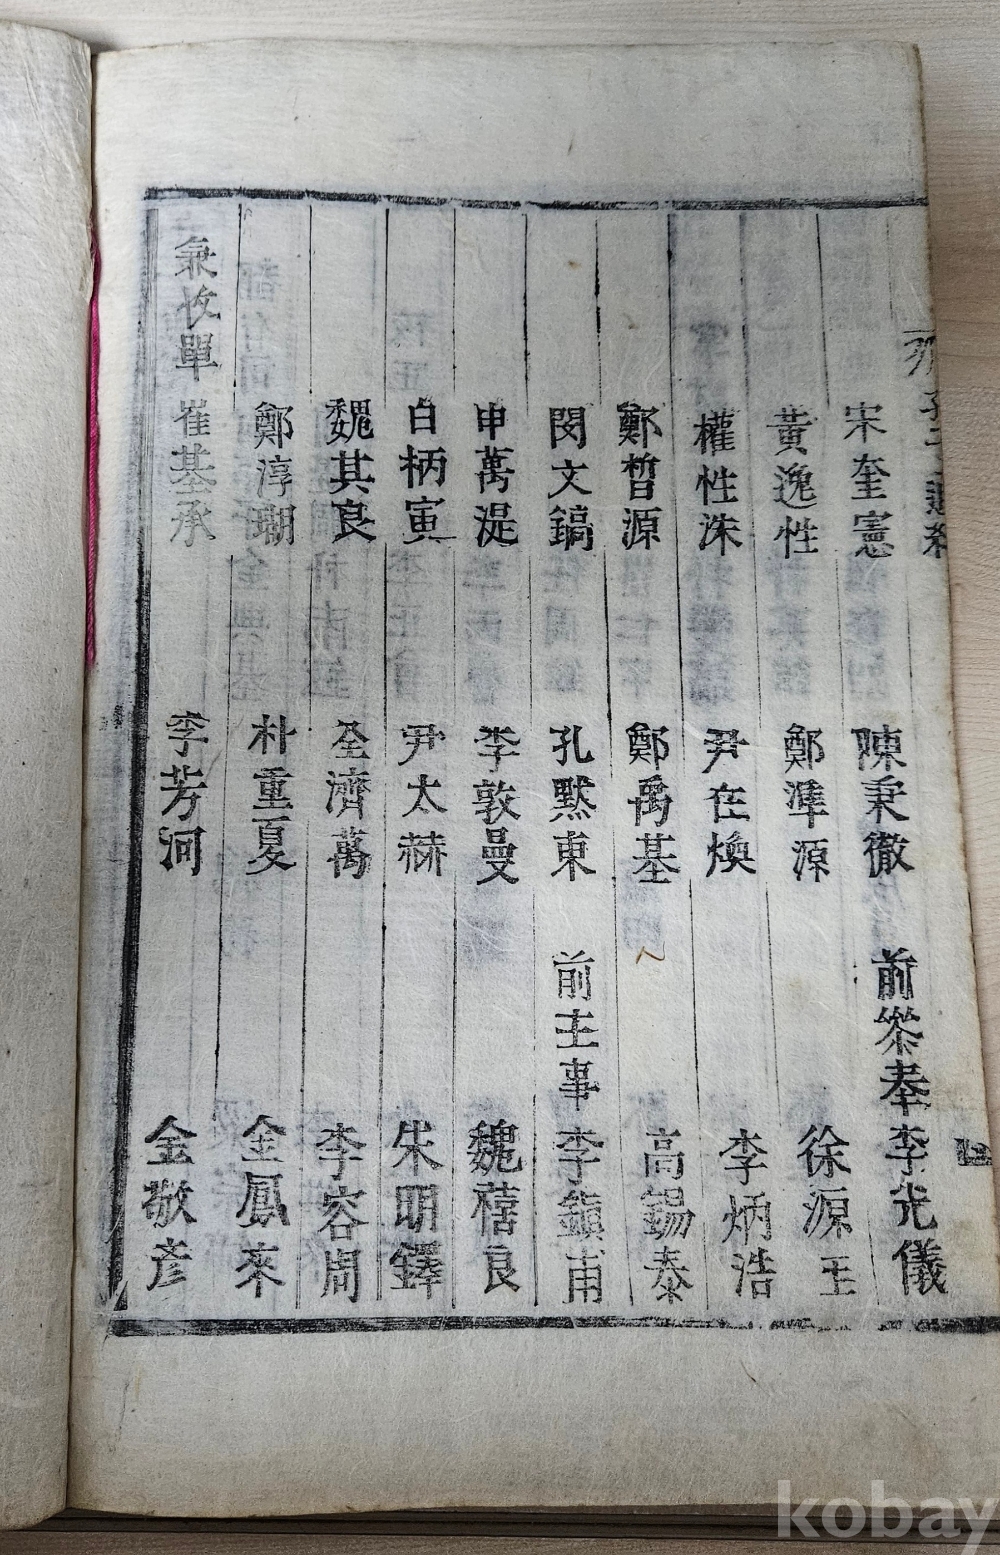 宋奎憲 陳秉徹 前參奉 李光儀
黃逸性 鄭準源 徐源王
權性洙 尹在煥 李炳浩
鄭晳源 鄭禹基 高錫泰
閔文鎬 孔默東 前主事 李鎭甫
申萬湜 李敦曼 魏禧良
白柄寅 尹太赫 朱明鐸
魏其良 全濟萬 李容周
鄭淳瑚 朴重夏 金鳳來
兼收單 崔基承 李芳河 金敬彦
kobay